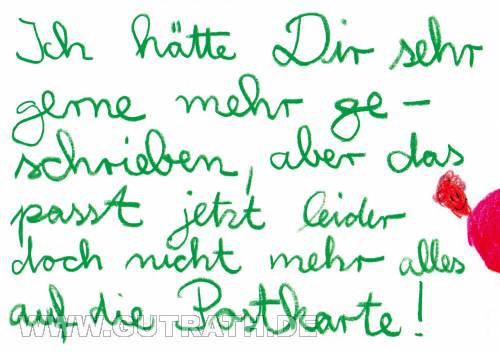 Ich hätte Dir sehr
gerne mehr ge-
schrieben, aber das
passt jetzt leider
doch nicht mehr alles
auf die Postkarte!
WWW.GUTRATH.DE